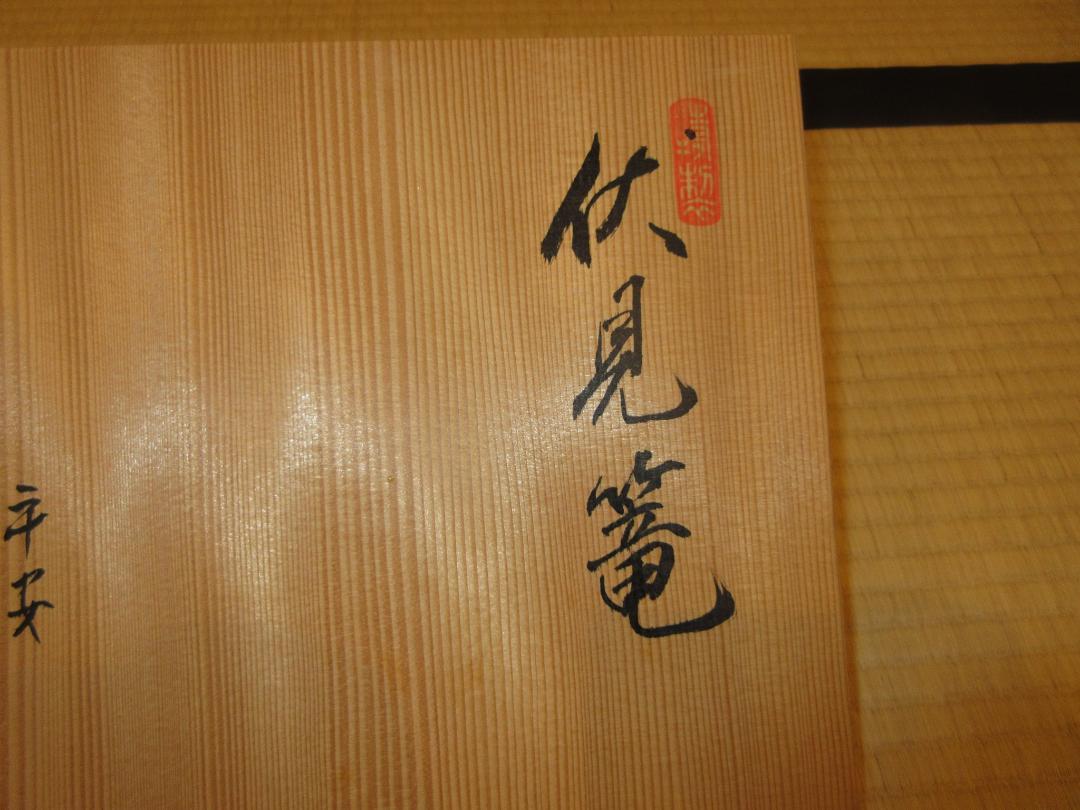 伏見篭
平安